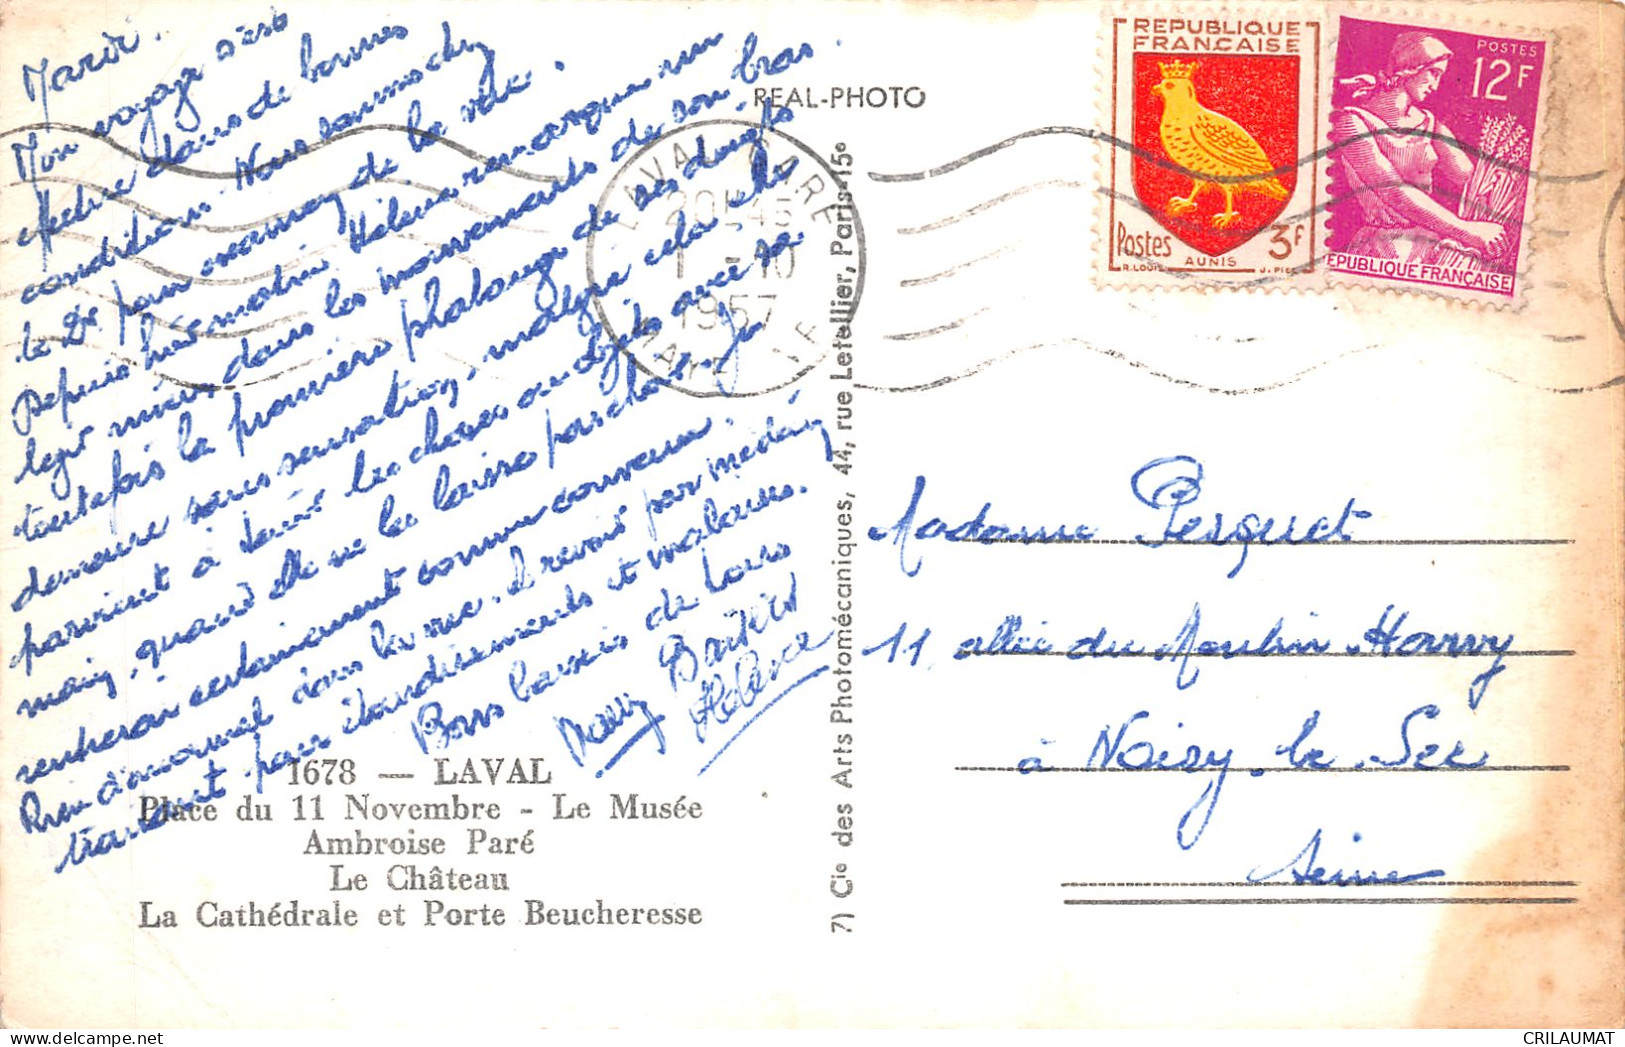 Mardi.
Mon voyage s'est
effectué dans de bonnes
conditions. Nous sommes chez
le Dr pour examen de la vue.
Depuis hier matin Hélène remarque un
léger mieux dans les mouvements de son bras.
toutefois la première phalange de ses doigts
demeure sans sensation, malgré cela elle
parvient à tenir les choses ou objets avec sa
main, quand elle ne les laisse pas choir. Je
rentrerai certainement comme convenu.
Rien d'anormal dans la vue. à revoir par médecin
traitant pour étourdissements et malaises.
Bons baisers de tous
Bastien
Hélène
REAL-PHOTO
1678 — LAVAL
Place du 11 Novembre - Le Musée
Ambroise Paré
Le Château
La Cathédrale et Porte Beucheresse
7) Cie des Arts Photomécaniques, 44, rue Letellier, Paris-15e
LAVAL GARE
20H45
1 -10
1957
MAYENNE
REPUBLIQUE
FRANÇAISE
Postes 3F
AUNIS
R. LOUIS J. PIEL
POSTES
12F
REPUBLIQUE FRANÇAISE
Madame Perquet
11, allée du Moulin Harvy
à Noisy-le-Sec
Seine
CRILAUMAT